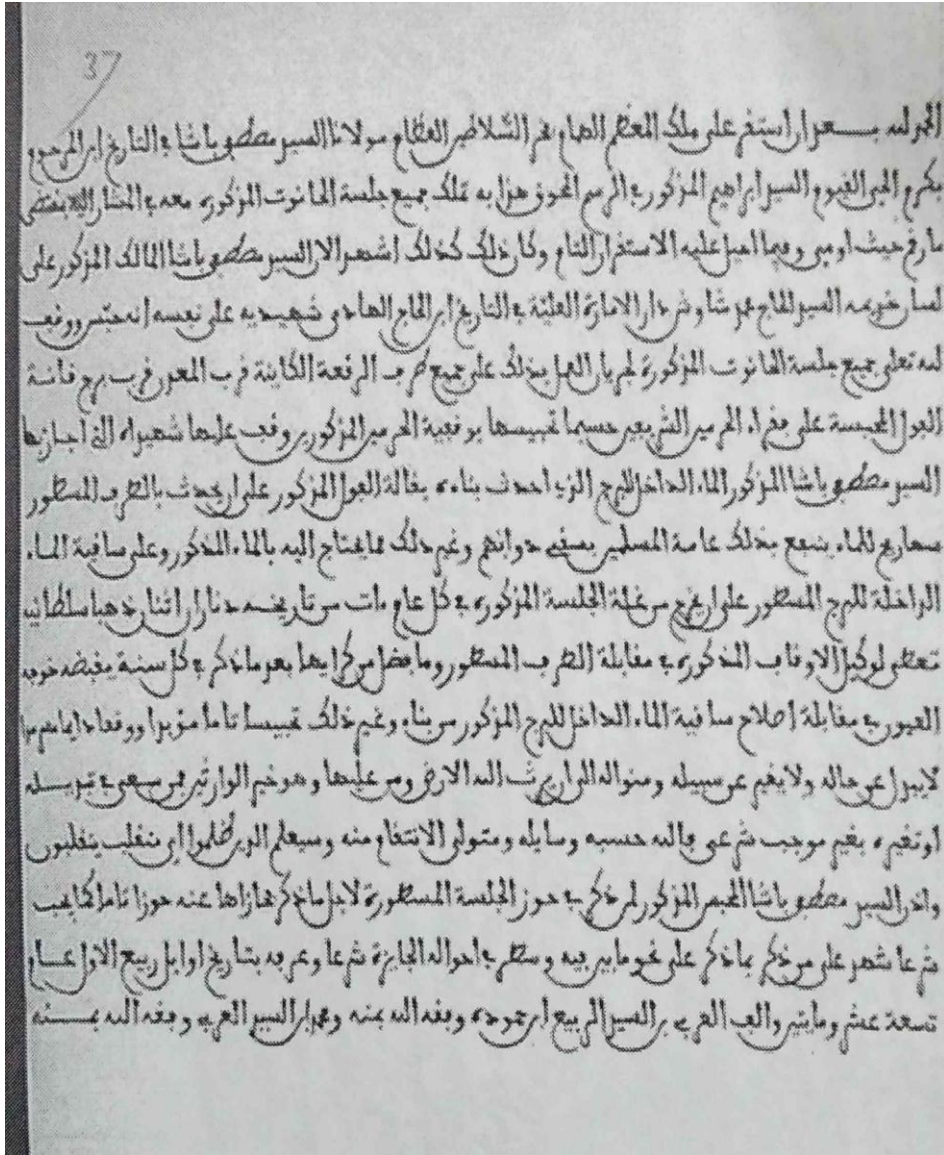 37
الحمد لله بعد ان استقر على ملك المعظم الهمام فخر السلاطين العظام مولانا السيد مصطفى باشا في التاريخ ابن المرحوم
بكرم الحي القيوم السيد ابراهيم المذكور في الرسم المحوق هذا به تملك جميع جلسة الحانوت المذكورة معه في المشار اليه بمقتضى
ما رقم حيث اومى وفيما احيل عليه الاستقرار التام وكان ذلك كذلك اشهد الان السيد مصطفى باشا المالك المذكور على
لسان خديمه السيد الحاج محمد شاوش دار الامارة العلية في التاريخ ابن الحاج الهادى شهيديه على نفسه انه حبس ووقف
لله تعلى جميع جلسة الحانوت المذكورة لجريان العمل بذلك على جميع طرف الرقعة الكاينة قرب المعدن قرب برج فانة
الفول المحبسة على فقراء الحرمين الشريفين حسبما تحبيسها بوقفية الحرمين المذكورين وقف عليها شهيداه التي اجاز بها
السيد مصطفى باشا المذكور الماء الداخل للبرج الذي احدث بناءه بفالة الفول المذكور على ان يحدث بالطرف المسطور
صهاريج للماء ينتفع بذلك عامة المسلمين بسقي دوابهم وغير ذلك مما يحتاج اليه بالماء المذكور وعلى ساقية الماء
الداخلة للبرج المسطور على ان يخرج من غلة الجلسة المذكورة في كل عام ءات من تاريخه ديناران اثنان ذهبا سلطانية
تعطى لوكيل الاوقاف المذكورة في مقابلة الطرف المسطور وما فضل من كرايها بعد ما ذكر في كل سنة يقبضه خوجة
العيون في مقابلة اصلاح ساقية الماء الداخل للبرج المذكور من بناء وغير ذلك تحبيسا تاما مؤبدا ووقفا دايما سرمدا
لا يبدل عن حاله ولا يغير عن سبيله ومنواله الى ان يرث الله الارض ومن عليها وهو خير الوارثين فمن سعى في تبديله
او تغييره بغير موجب شرعى فالله حسبه وسايله ومتولى الانتقام منه وسيعلم الذين ظلموا اي منقلب ينقلبون
واذن السيد مصطفى باشا المحبس المذكور لمن ذكر في حوز الجلسة المسطورة لاجل ما ذكر فحازاها عنه حوزا تاما كما يجب
شرعا شهد على من ذكر بما ذكر على نحو ما بين فيه وسطر في احواله الجايزة شرعا وعرفه بتاريخ اوايل ربيع الاول عام
تسعة عشر ومايتين والف العربي بن السيد الربيع ابن حمودة وفقه الله بمنه ومحمد ابن السيد العربي وفقه الله بمنه